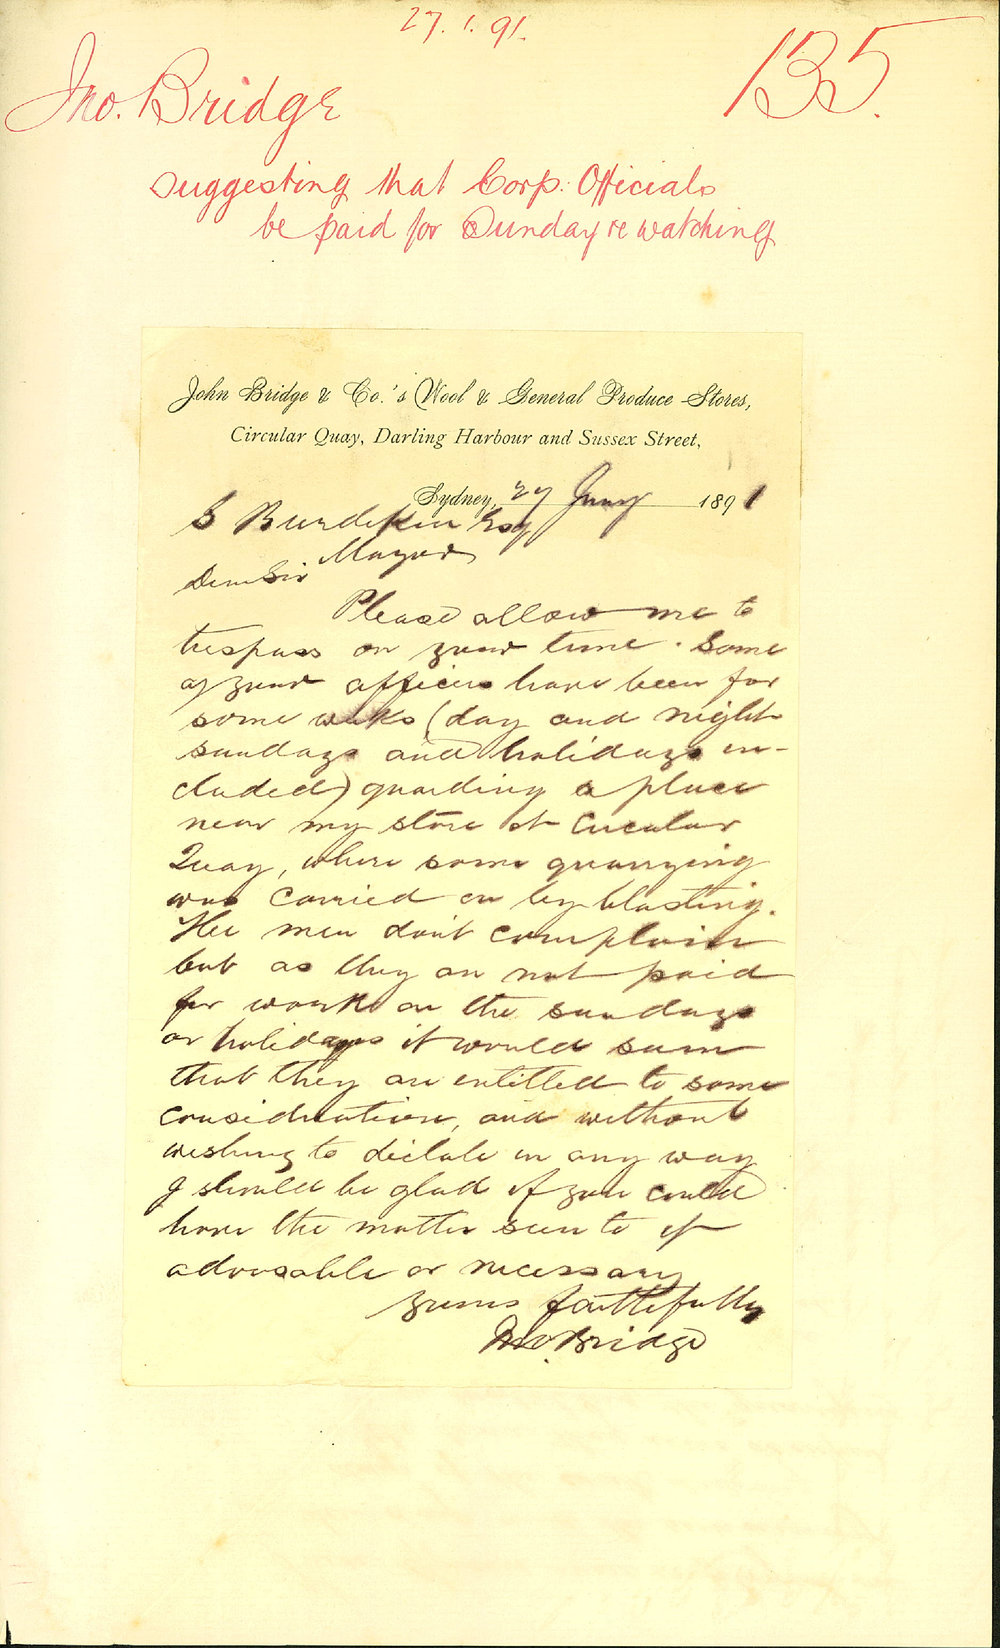 27.1.91.
135.
Jno. Bridge
suggesting that Corp: Officials
be paid for Sunday re watching
John Bridge & Co.'s Wool & General Produce Stores,
Circular Quay, Darling Harbour and Sussex Street,
Sydney, 27 Jany 1891
S Burdekin Esq
Mayor
Dear Sir
Please allow me to
trespass on your time. Some
of your officers have been for
some weeks (day and night
sundays and holidays in-
cluded) guarding a place
near my store at Circular
Quay, where some quarrying
was carried on by blasting.
The men don't complain
but as they are not paid
for work on the sundays
or holidays it would seem
that they are entitled to some
consideration, and without
wishing to dictate in any way
I should be glad if you could
have the matter seen to if
advisable or necessary
yours faithfully
Jno. Bridge